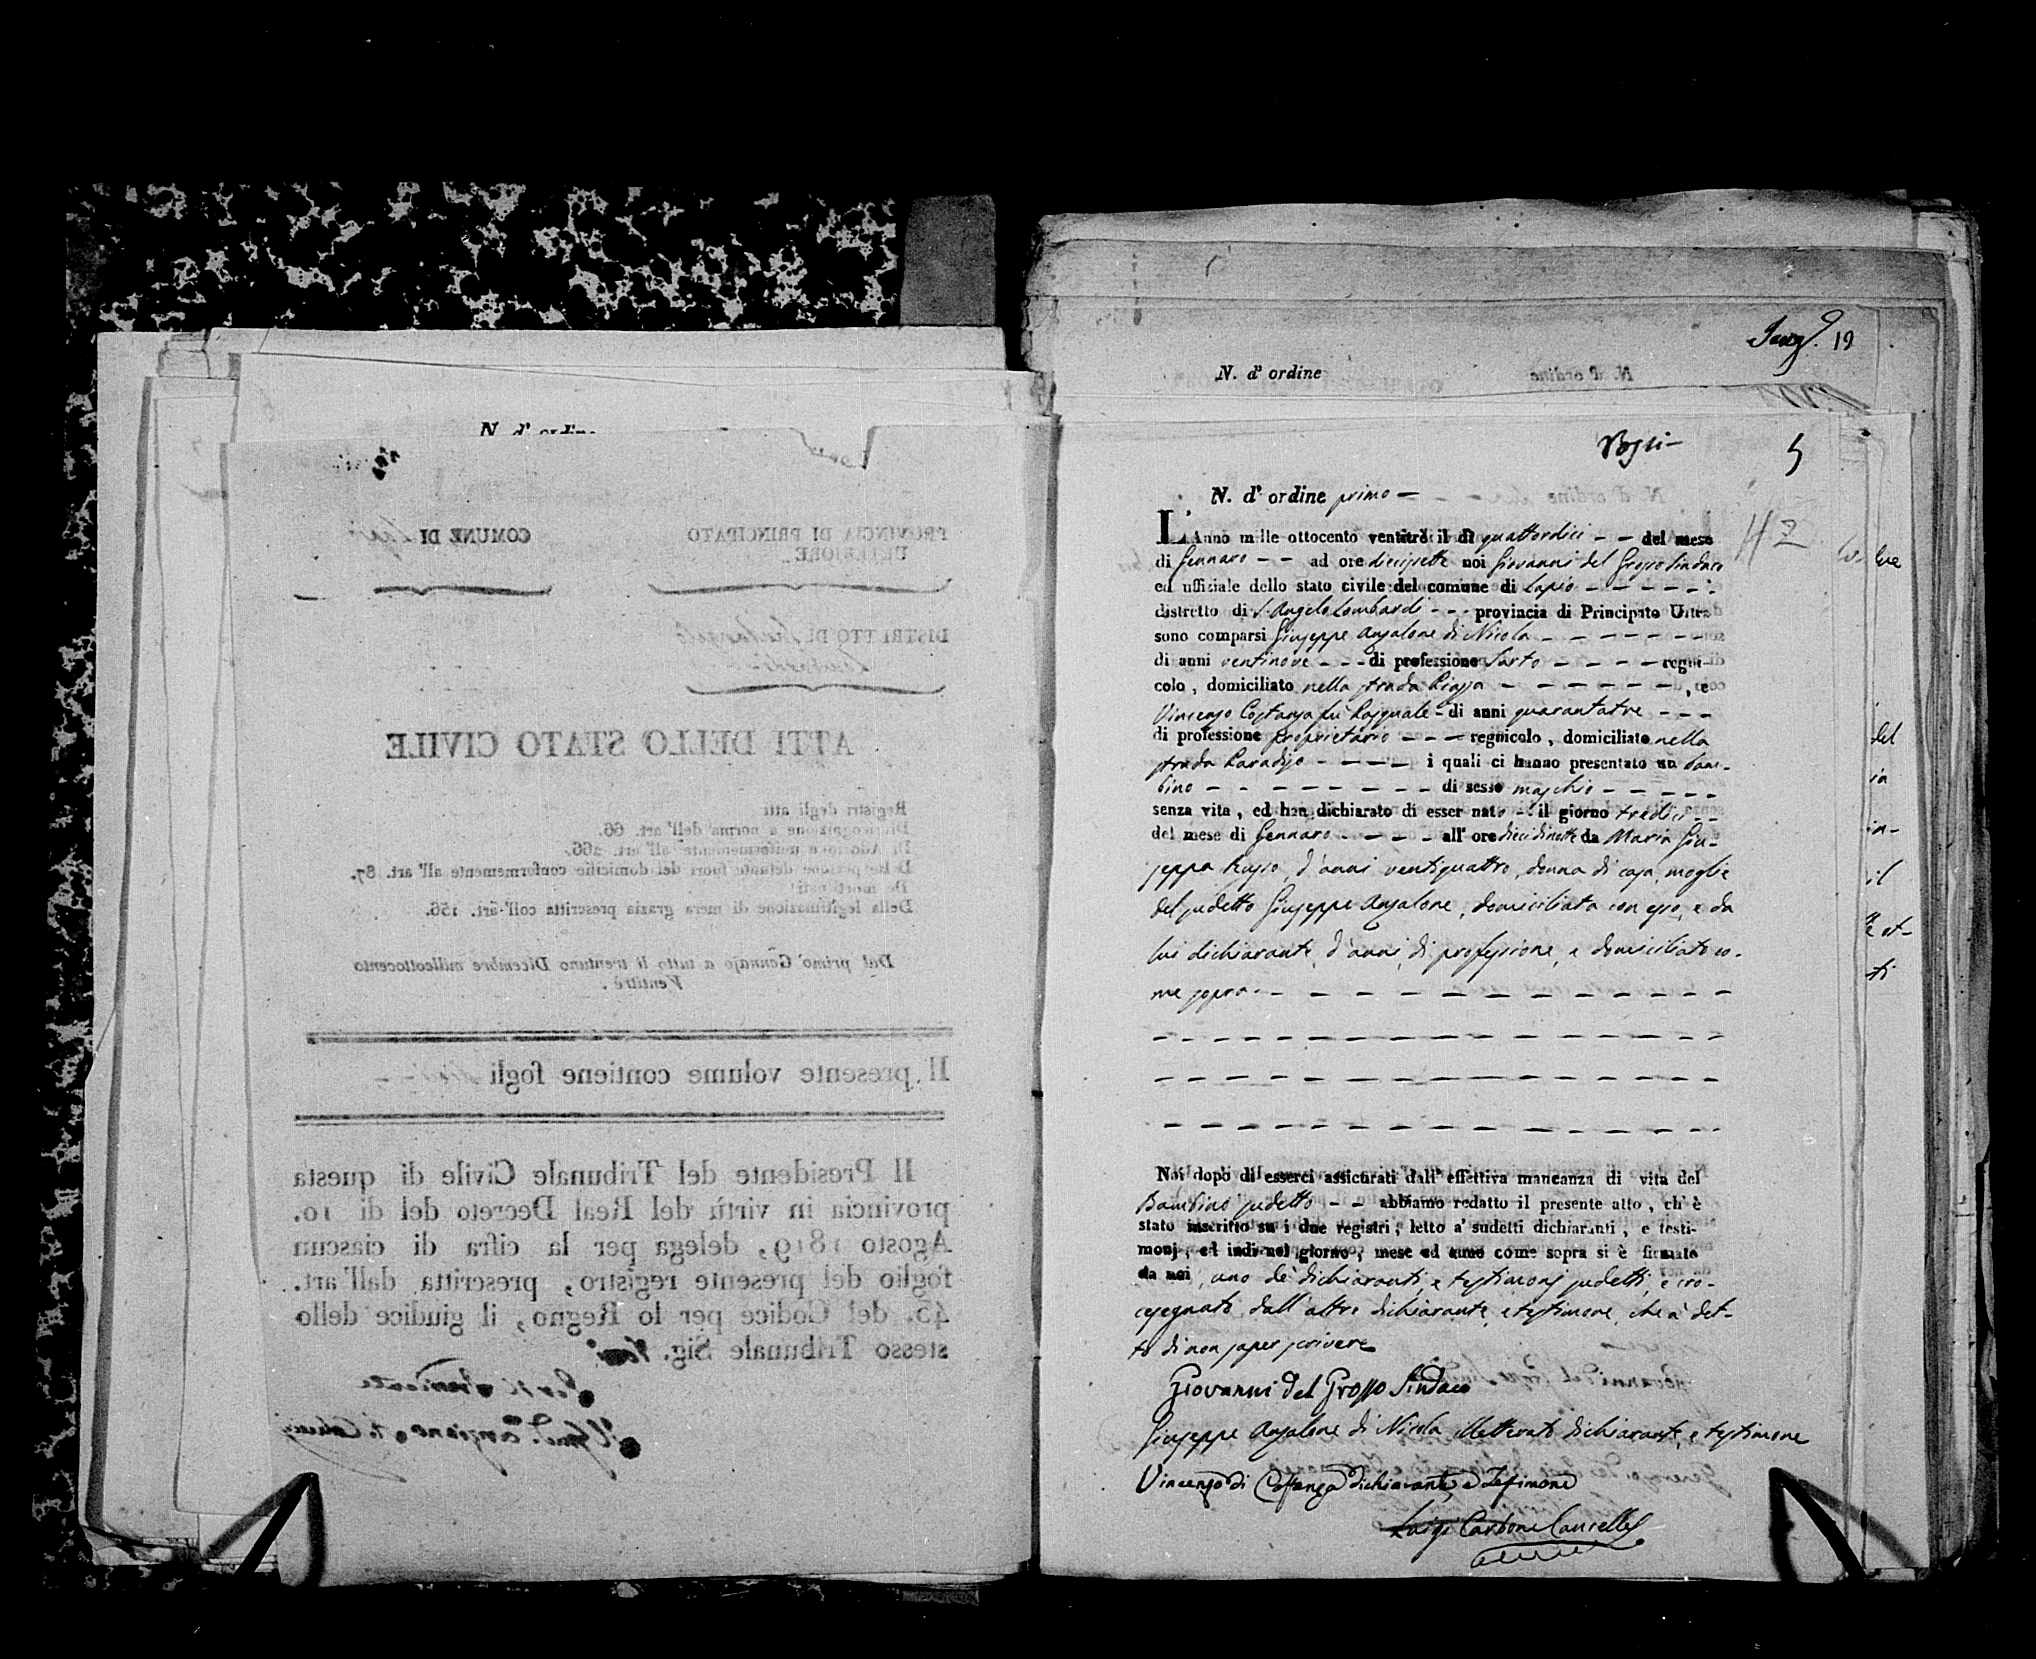 N. d' ordine
COMUNE DI
PROVINCIA DI PRINCIPATO
ULTERIORE
DISTRETTO DI
ATTI DELLO STATO CIVILE
Registri degli atti
Di ricognizione a norma dell'art. 66.
Di Adozione uniformemente all'art. 266.
Di Rettificazione
fuori del domicilio conformemente all'art. 87.
De morti nati
Della legittimazione di mera grazia prescritta coll'art. 256.
Dal primo Gennajo a tutto li trentuno Dicembre milleottocento
Ventitrè.
Il presente volume contiene fogli
Il Presidente del Tribunale Civile di questa
provincia in virtù del Real Decreto del dì 10.
Agosto 1819, delega per la cifra di ciascun
foglio del presente registro, prescritta dall'art.
45. del Codice per lo Regno, il giudice dello
stesso Tribunale Sig.
Per il Presidente
19
N. d' ordine
N. d' ordine
5
N. d' ordine primo —
L'Anno mille ottocento ventitrè il dì quattordici — — del mese
di Gennaro — — ad ore diecisette noi Giovanni del Grosso Sindaco
ed uffiziale dello stato civile del comune di Lapio — — — — —
distretto di S. Angelo Lombardi — — provincia di Principato Ultra
sono comparsi Giuseppe Anzalone di Nicola — — — — — —
di anni ventinove — — — di professione Sarto — — — — regni-
colo, domiciliato nella strada Piazza — — — — — — , e
Vincenzo Costanza fu Pasquale — di anni quarantatre — — —
di professione proprietario — — — regnicolo, domiciliato nella
strada Paradiso — — — — i quali ci hanno presentato un bam-
bino — — — — — — — — di sesso maschio — — — — —
senza vita, ed han dichiarato di esser nato — il giorno tredici — —
del mese di Gennaro — — — — all' ore dieci dinotte da Maria Giu-
seppa Russo, d'anni ventiquattro, donna di casa, moglie
del sudetto Giuseppe Anzalone, domiciliata con esso, e da
lui dichiarante, d'anni, di professione, e domiciliato co-
me sopra — — — — — — — — — — —
Noi dopo di esserci assicurati dall' effettiva mancanza di vita del
Bambino sudetto — — abbiamo redatto il presente atto, ch' è
stato inscritto su i due registri, letto a' sudetti dichiaranti, e testi-
monj, ed indi nel giorno, mese ed anno come sopra si è firmato
da noi, uno de' dichiaranti, e testimonj sudetti, e cro-
cesegnato dall' altro dichiarante, e testimone, che à det-
to di non saper scrivere
Giovanni del Grosso Sindaco
Giuseppe Anzalone di Nicola illetterato dichiarante, e testimone
Vincenzo di Costanza dichiarante e Testimone
Luigi Carbone Cancelle